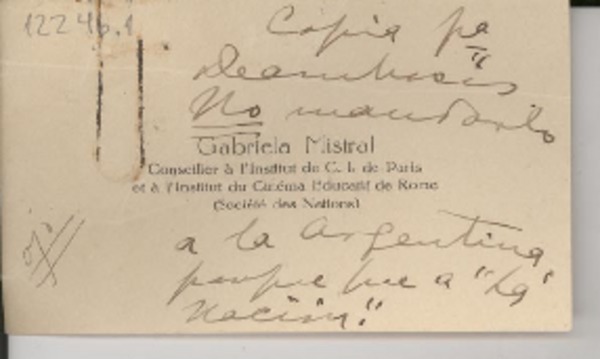 12246.1
Copia pa
Deambrosis
No mandarlo
Gabriela Mistral
Conseiller à l'Institut de C. I. de Paris
et à l'Institut du Cinéma Educatif de Rome
(Société des Nations)
ojo
a la Argentina
porque fue a "La
Nación".